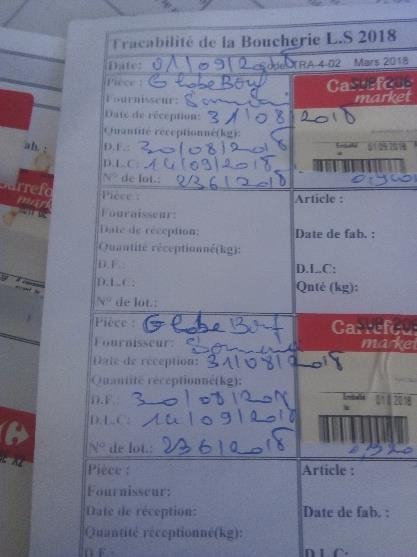 Tracabilité de la Boucherie L.S 2018
Date: 01/09/2018 Code: TRA-4-02 Mars 2018
Pièce: Globe Bœuf
Fournisseur:
Date de réception: 31/08/2018
Quantité réceptionné(kg):
D.F.: 30/08/2018
D.L.C: 14/09/2018
N° de lot.: 236/2018
Carrefour
market
Emballé 01.09.2018
le
0,940
Pièce:
Fournisseur:
Date de réception:
Quantité réceptionné(kg):
D.F.:
D.L.C:
N° de lot.:
Article :
Date de fab. :
D.L.C:
Qnté (kg):
Pièce : Globe Bœuf
Fournisseur:
Date de réception: 31/08/2018
Quantité réceptionné(kg):
D.F.: 30/08/2018
D.L.C: 14/09/2018
N° de lot.: 236/2018
Carrefour
market
Emballé
le
0,920
Pièce :
Fournisseur:
Date de réception:
Quantité réceptionné(kg):
D.F.:
Article :
Date de fab. :
D.L.C:
Qnté (kg):
fab. :